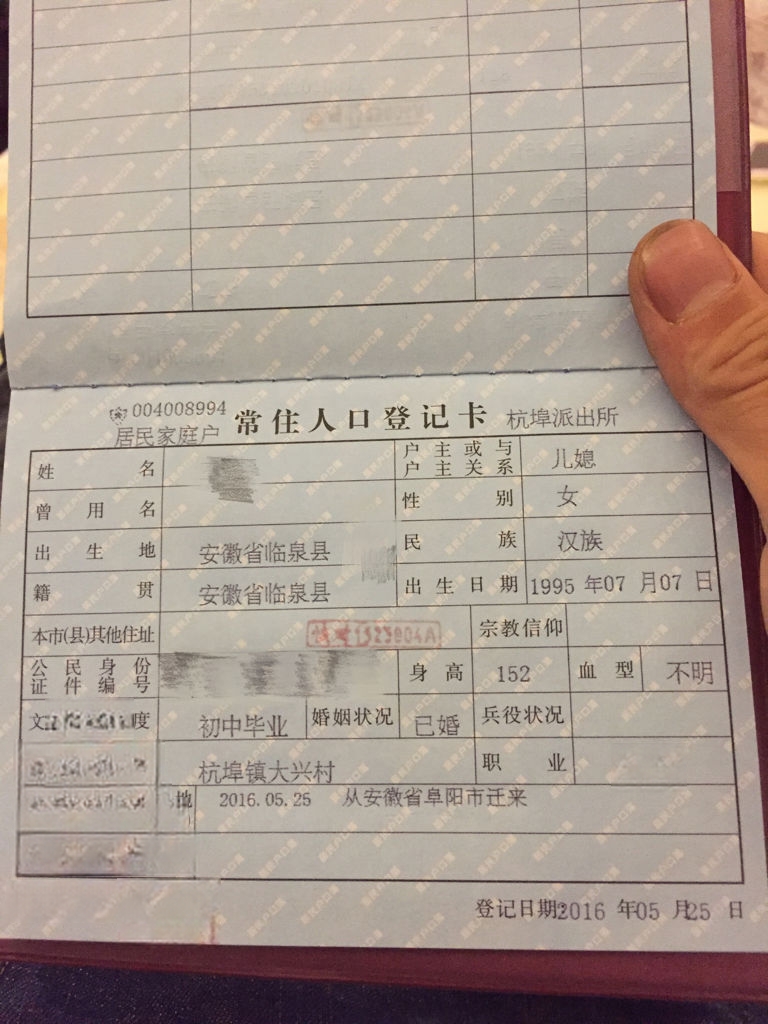 004008994
居民家庭户
常住人口登记卡
杭埠派出所
姓名
户主或与户主关系 儿媳
曾用名 性别 女
出生地 安徽省临泉县 民族 汉族
籍贯 安徽省临泉县 出生日期 1995年07月07日
本市(县)其他住址 1323904A 宗教信仰
公民身份证件编号 身高 152 血型 不明
文 度 初中毕业 婚姻状况 已婚 兵役状况
杭埠镇大兴村 职业
地 2016.05.25 从安徽省阜阳市迁来
登记日期:2016年05月25日